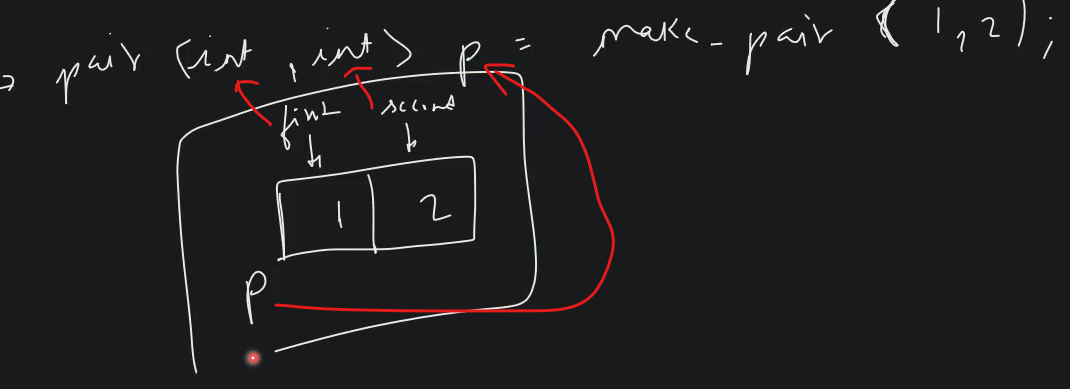 → pair <int, int> p = make_pair (1,2);
first second
1 2
p